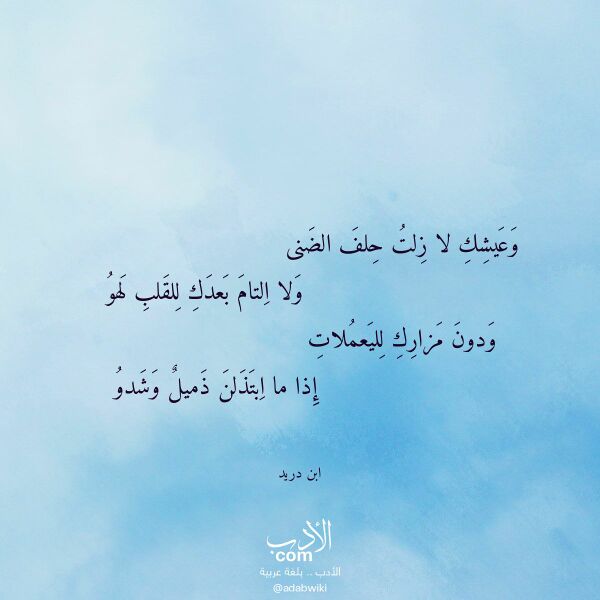 وَعَيشِكِ لا زِلتُ حِلفَ الضَنى
وَلا اِلتامَ بَعدَكِ لِلقَلبِ لَهوُ
وَدونَ مَزارِكِ لِليَعمُلاتِ
إِذا ما اِبتَذَلنَ ذَميلٌ وَشَدوُ
ابن دريد
الأدب
com
الأدب .. بلغة عربية
@adabwiki